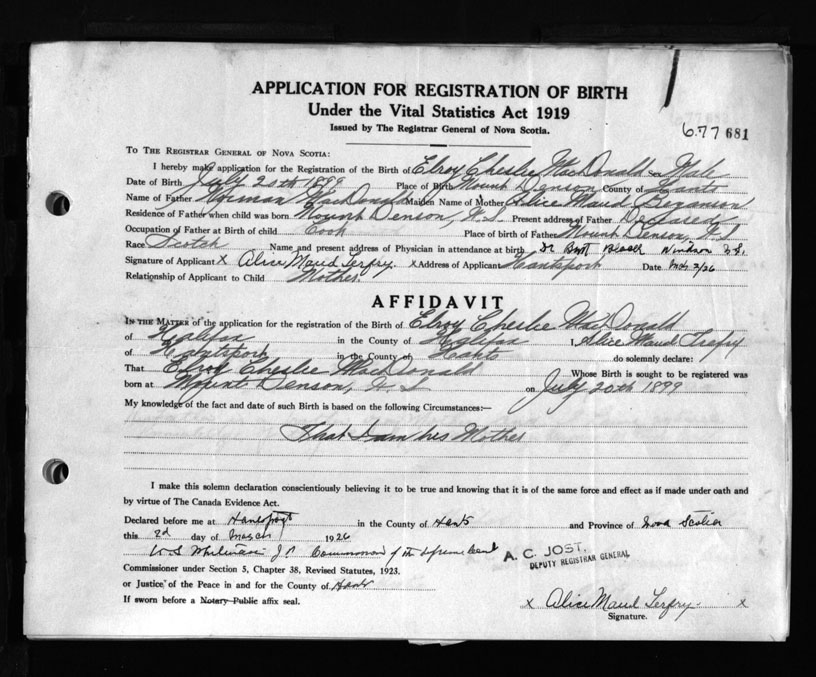 APPLICATION FOR REGISTRATION OF BIRTH
Under the Vital Statistics Act 1919
Issued by The Registrar General of Nova Scotia.
677681
TO THE REGISTRAR GENERAL OF NOVA SCOTIA:
I hereby make application for the Registration of the Birth of Elroy Cheslie MacDonald Sex Male
Date of Birth July 20th 1899 Place of Birth Mount Denson County of Hants
Name of Father Norman MacDonald Maiden Name of Mother Alice Maud Bezanson
Residence of Father when child was born Mount Denson, N.S. Present address of Father Deceased
Occupation of Father at Birth of child Cook Place of birth of Father Mount Denson, N.S
Race Scotch Name and present address of Physician in attendance at birth Dr Black Windsor N.S.
Signature of Applicant X Alice Maud Terfry. X Address of Applicant Hantsport Date 2/26
Relationship of Applicant to Child Mother.
AFFIDAVIT
IN THE MATTER of the application for the registration of the Birth of Elroy Cheslie MacDonald
of Halifax in the County of Halifax I, Alice Maud Trefry
of Hantsport in the County of Hants do solemnly declare:
That Elroy Cheslie MacDonald Whose Birth is sought to be registered was
born at Mount Denson, N.S on July 20th 1899
My knowledge of the fact and date of such Birth is based on the following Circumstances:—
That I am his Mother
I make this solemn declaration conscientiously believing it to be true and knowing that it is of the same force and effect as if made under oath and
by virtue of The Canada Evidence Act.
Declared before me at Hantsport in the County of Hants and Province of Nova Scotia
this 2d day of March 1926
J P Commissioner of the Supreme Court
A. C. JOST,
DEPUTY REGISTRAR GENERAL
Commissioner under Section 5, Chapter 38, Revised Statutes, 1923.
or Justice of the Peace in and for the County of Hants
If sworn before a Notary Public affix seal.
x Alice Maud Terfry. x
Signature.